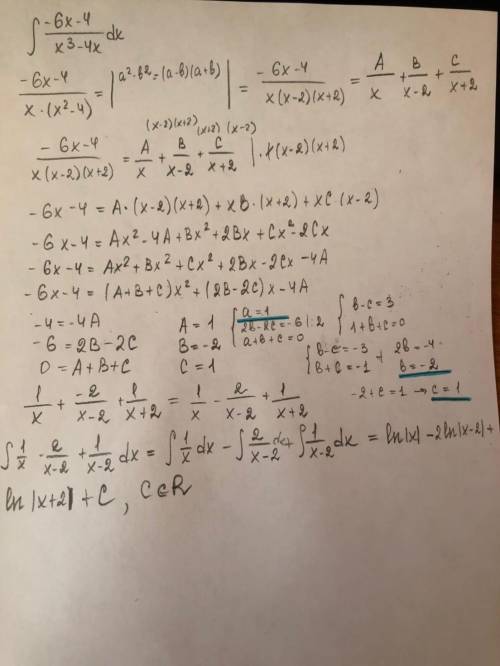 ∫ (-6x-4)/(x³-4x) dx
(-6x-4)/(x·(x²-4)) = |a²-b²=(a-b)(a+b)| = (-6x-4)/(x(x-2)(x+2)) = A/x + B/(x-2) + C/(x+2)
(x-2)(x+2) (x+2) (x-2)
(-6x-4)/(x(x-2)(x+2)) = A/x + B/(x-2) + C/(x+2) |·x(x-2)(x+2)
-6x-4 = A·(x-2)(x+2) + xB·(x+2) + xC·(x-2)
-6x-4 = Ax²-4A+Bx²+2Bx+Cx²-2Cx
-6x-4 = Ax²+Bx²+Cx²+2Bx-2Cx-4A
-6x-4 = (A+B+C)x²+(2B-2C)x-4A
-4=-4A
-6=2B-2C
0=A+B+C
A=1
B=-2
C=1
{ a=1
2b-2c=-6 |:2
a+b+c=0
{ b-c=3
1+b+c=0
{ b-c=-3
b+c=-1 +
2b=-4
b=-2
-2+c=1 → c=1
1/x + -2/(x-2) + 1/(x+2) = 1/x - 2/(x-2) + 1/(x+2)
∫ 1/x - 2/(x-2) + 1/(x-2) dx = ∫ 1/x dx - ∫ 2/(x-2) dx + ∫ 1/(x-2) dx = ln|x| - 2ln|x-2| +
ln|x+2| + C, C∈R